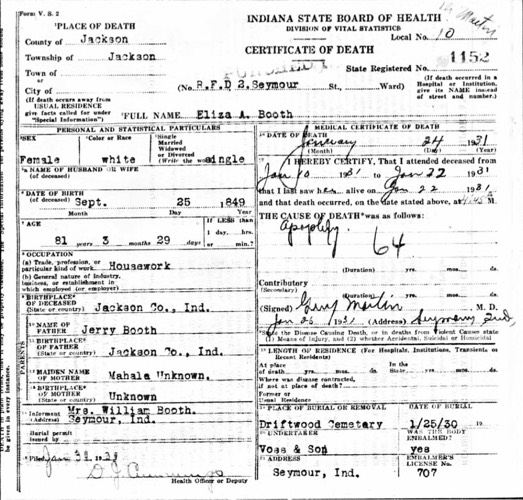 Form V. S. 2
INDIANA STATE BOARD OF HEALTH
DIVISION OF VITAL STATISTICS
Local No. 10
CERTIFICATE OF DEATH
State Registered No. 1152
PLACE OF DEATH
County of Jackson
Township of Jackson
Town of
or
City of
(No. R.F.D 2. Seymour St., Ward)
(If death occurred in a Hospital or Institution, give its NAME instead of street and number.)
(If death occurs away from USUAL RESIDENCE give facts called for under "Special Information")
FULL NAME Eliza A. Booth
PERSONAL AND STATISTICAL PARTICULARS
SEX
Female
Color or Race
white
Single
Married
Widowed
or Divorced
(Write the word) single
NAME OF HUSBAND OR WIFE
(of deceased)
DATE OF BIRTH
(of deceased) Sept. 25 1849
Month Day Year
AGE
81 years 3 months 29 days
If LESS than
1 day. hrs.
or min.?
OCCUPATION
(a) Trade, profession, or particular kind of work Housework
(b) General nature of industry, business, or establishment in which employed (or employer)
BIRTHPLACE
OF DECEASED
(State or country) Jackson Co., Ind.
PARENTS
NAME OF
FATHER Jerry Booth
BIRTHPLACE
OF FATHER
(State or country) Jackson Co., Ind.
MAIDEN NAME
OF MOTHER Mahala Unknown.
BIRTHPLACE
OF MOTHER
(State or country) Unknown
Informant Mrs. William Booth.
(Address) Seymour, Ind.
Burial permit
issued by
Filed Jan
Health Officer or Deputy
MEDICAL CERTIFICATE OF DEATH
DATE OF DEATH
January 24 1931
(Month) (Day) (Year)
I HEREBY CERTIFY, That I attended deceased from
Jan 10 1931 to Jan 22 1931
that I last saw her alive on Jan 22 1931
and that death occurred, on the date stated above, at M.
THE CAUSE OF DEATH was as follows:
Apoplexy
64
(Duration) yrs. mos. ds.
Contributory
(Secondary)
(Duration) yrs. mos. ds.
(Signed) Martin M. D.
Jan 26 1931 (Address) Seymour Ind.
State the Disease Causing Death, or in deaths from Violent Causes state (1) Means of Injury, and (2) whether Accidental, Suicidal or Homicidal
LENGTH OF RESIDENCE (For Hospitals, Institutions, Transients or Recent Residents)
At place
of death yrs. mos. ds. In the State, yrs. mos. ds.
Where was disease contracted,
if not at place of death?
Former or
Usual Residence
PLACE OF BURIAL OR REMOVAL
Driftwood Cemetary
DATE OF BURIAL
1/25/30 19
UNDERTAKER
Voss & Son
WAS THE BODY
EMBALMED?
yes
ADDRESS
Seymour, Ind.
EMBALMER'S
LICENSE No.
707